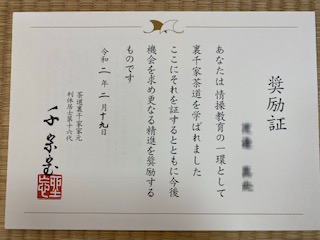 奨励証
あなたは情操教育の一環として
裏千家茶道を学ばれました
ここにそれを証するとともに今後
機会を求め更なる精進を奨励する
ものです
令和二年二月十九日
茶道裏千家家元
利休居士第十六代
千宗室